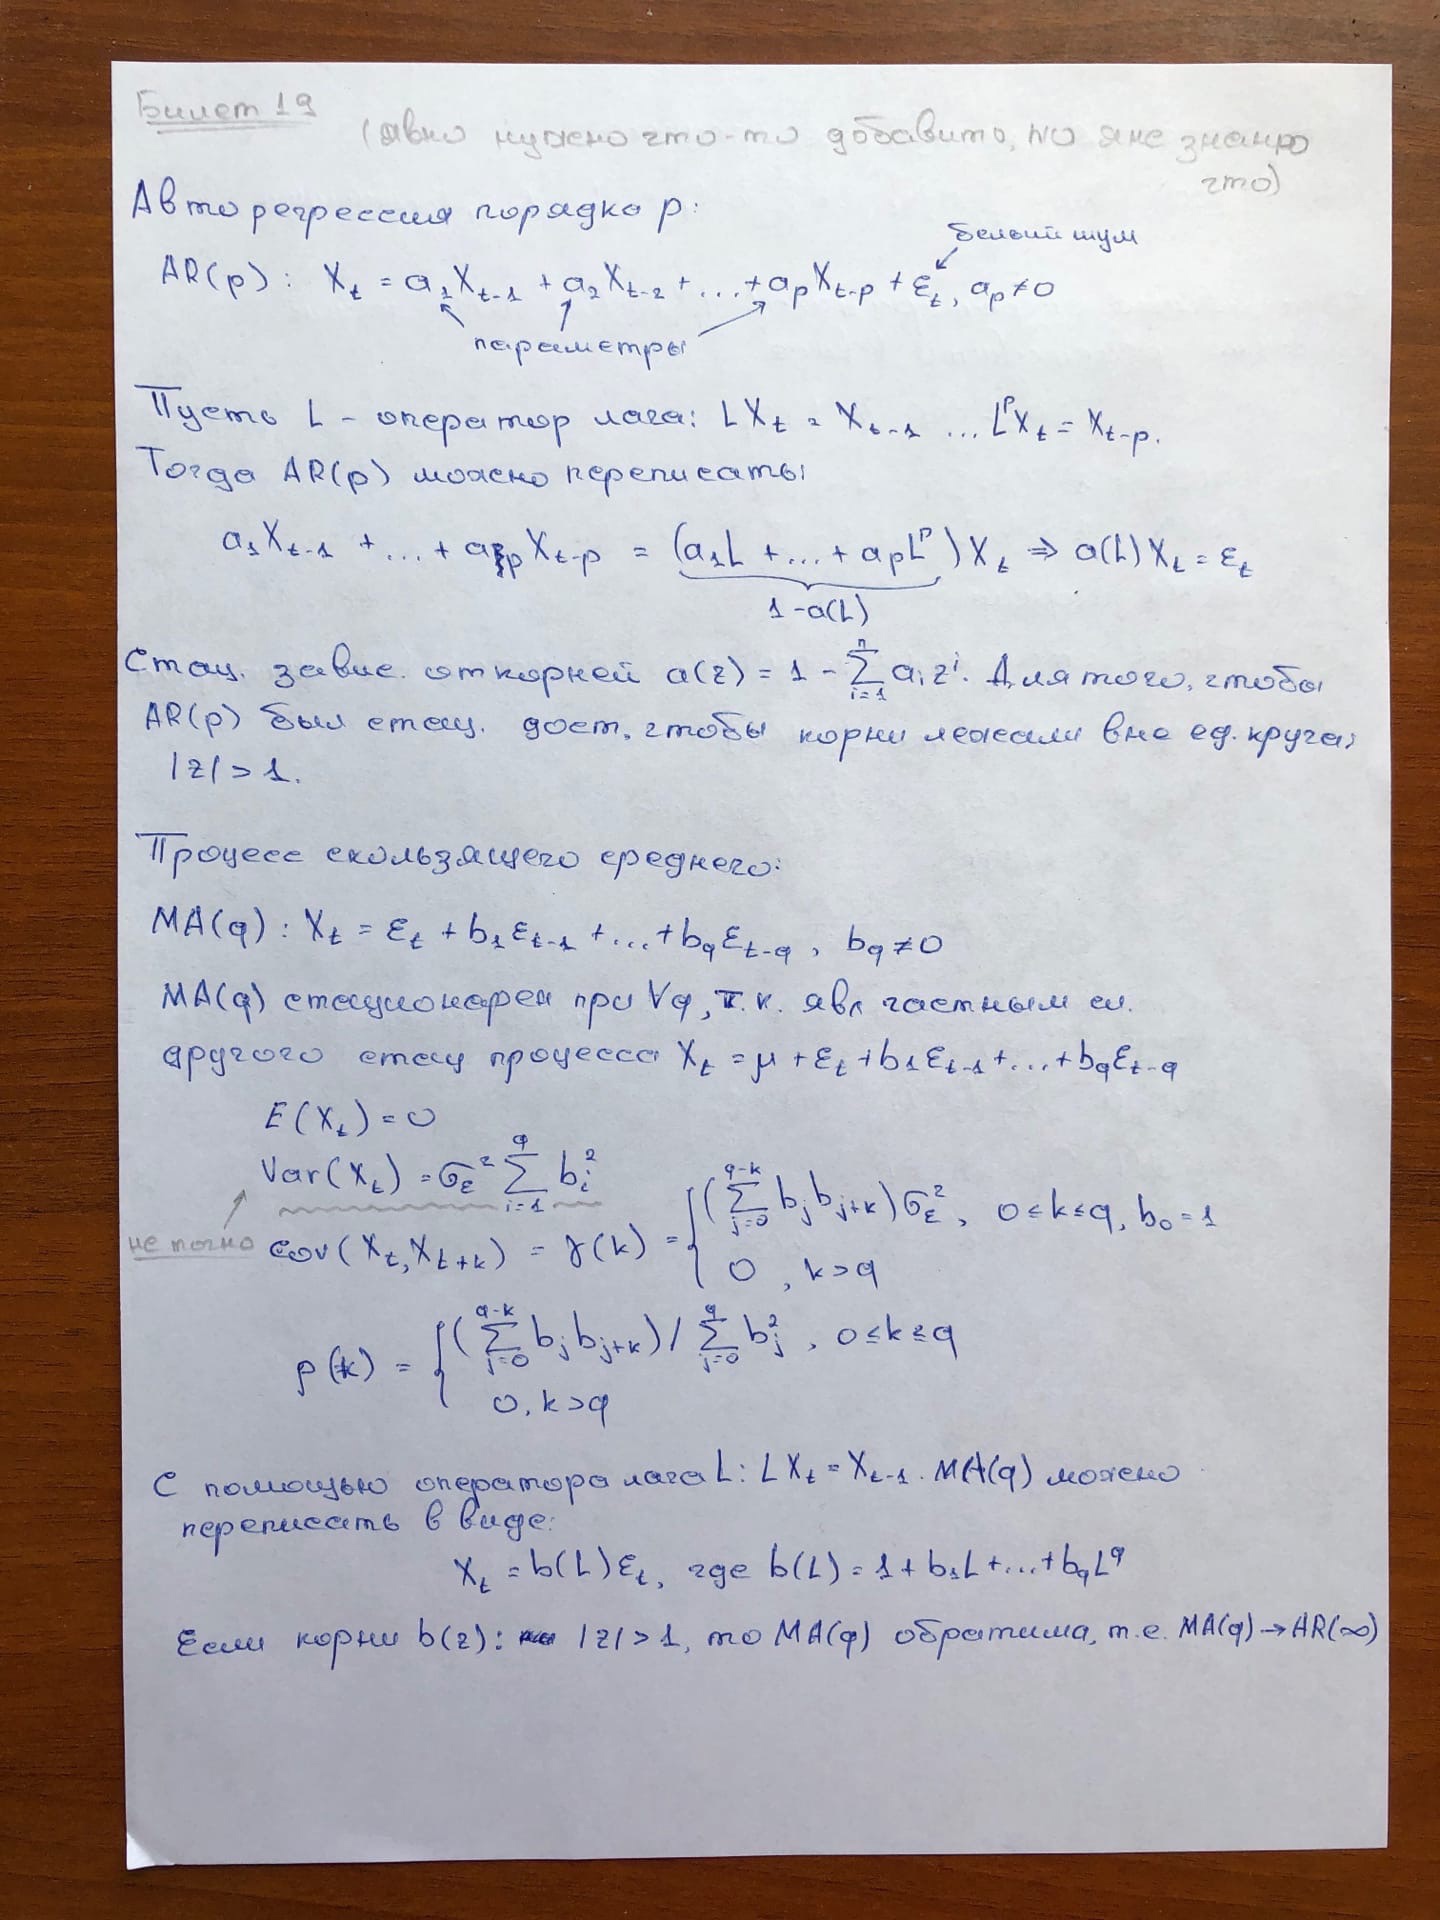 Билет 19
(явно нужно что-то добавить, но я не знаю
что)
Авторегрессия порядка p:
белый шум
AR(p): X_t = a_1X_{t-1} + a_2X_{t-2} + ... + a_pX_{t-p} + ε_t, a_p ≠ 0
параметры
Пусть L - оператор лага: LX_t = X_{t-1} ... L^pX_t = X_{t-p}.
Тогда AR(p) можно переписать:
a_1X_{t-1} + ... + a_pX_{t-p} = (a_1L + ... + a_pL^p)X_t ⇒ a(L)X_t = ε_t
1-a(L)
Стац. завис. от корней a(z) = 1 - Σ_{i=1}^{n} a_i z^i. Для того, чтобы
AR(p) был стац. дост, чтобы корни лежали вне ед. круга:
|z|>1.
Процесс скользящего среднего:
MA(q): X_t = ε_t + b_1ε_{t-1} + ... + b_qε_{t-q}, b_q ≠ 0
MA(q) стационарен при ∀q, т.к. явл частным сл.
другого стац процесса X_t = μ + ε_t + b_1ε_{t-1} + ... + b_qε_{t-q}
E(X_t) = 0
Var(X_t) = σ_ε^2 Σ_{i=1}^{q} b_i^2
не точно
cov(X_t, X_{t+k}) = γ(k) = { (Σ_{j=0}^{q-k} b_j b_{j+k})σ_ε^2, 0≤k≤q, b_0=1
0, k>q
ρ(k) = { (Σ_{j=0}^{q-k} b_j b_{j+k}) / Σ_{j=0}^{q} b_j^2, 0≤k≤q
0, k>q
С помощью оператора лага L: LX_t = X_{t-1}. MA(q) можно
переписать в виде:
X_t = b(L)ε_t, где b(L) = 1 + b_1L + ... + b_qL^q
Если корни b(z): |z|>1, то MA(q) обратима, т.е. MA(q) → AR(∞)